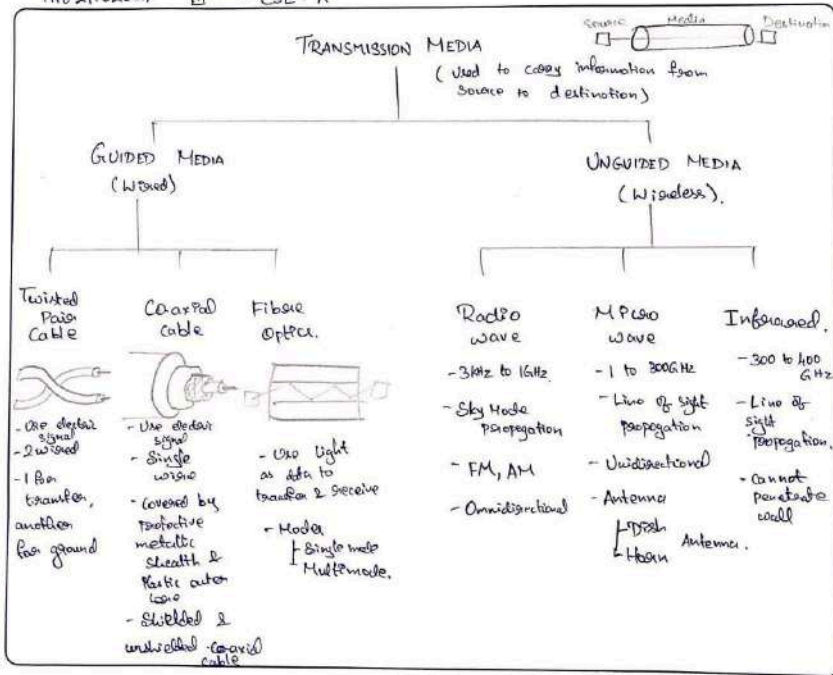 Source
Media
Destination
TRANSMISSION MEDIA
(Used to carry information from
source to destination)
GUIDED MEDIA
(Wired)
UNGUIDED MEDIA
(Wireless).
Twisted
Pair
Cable
- Use electric
signal
- 2 wired
- 1 for
transfer,
another
for ground
Co-axial
cable
- Use electric
signal
- Single
wire
- Covered by
protective
metallic
shealth &
Plastic outer
- Shielded &
unshielded co-axial
cable
Fibre
Optics.
- Use light
as data to
transfer & receive
- Modes
Single mode
Multimode.
Radio
wave
- 3kHz to 1GHz
- Sky Mode
propegation
- FM, AM
- Omnidirectional
Micro
wave
- 1 to 300GHz
- Line of sight
propegation
- Unidirectional
- Antenna
Dish
Horn
Antenna.
Infrared.
- 300 to 400
GHz
- Line of
sight
propogation.
- Cannot
penetrate
wall